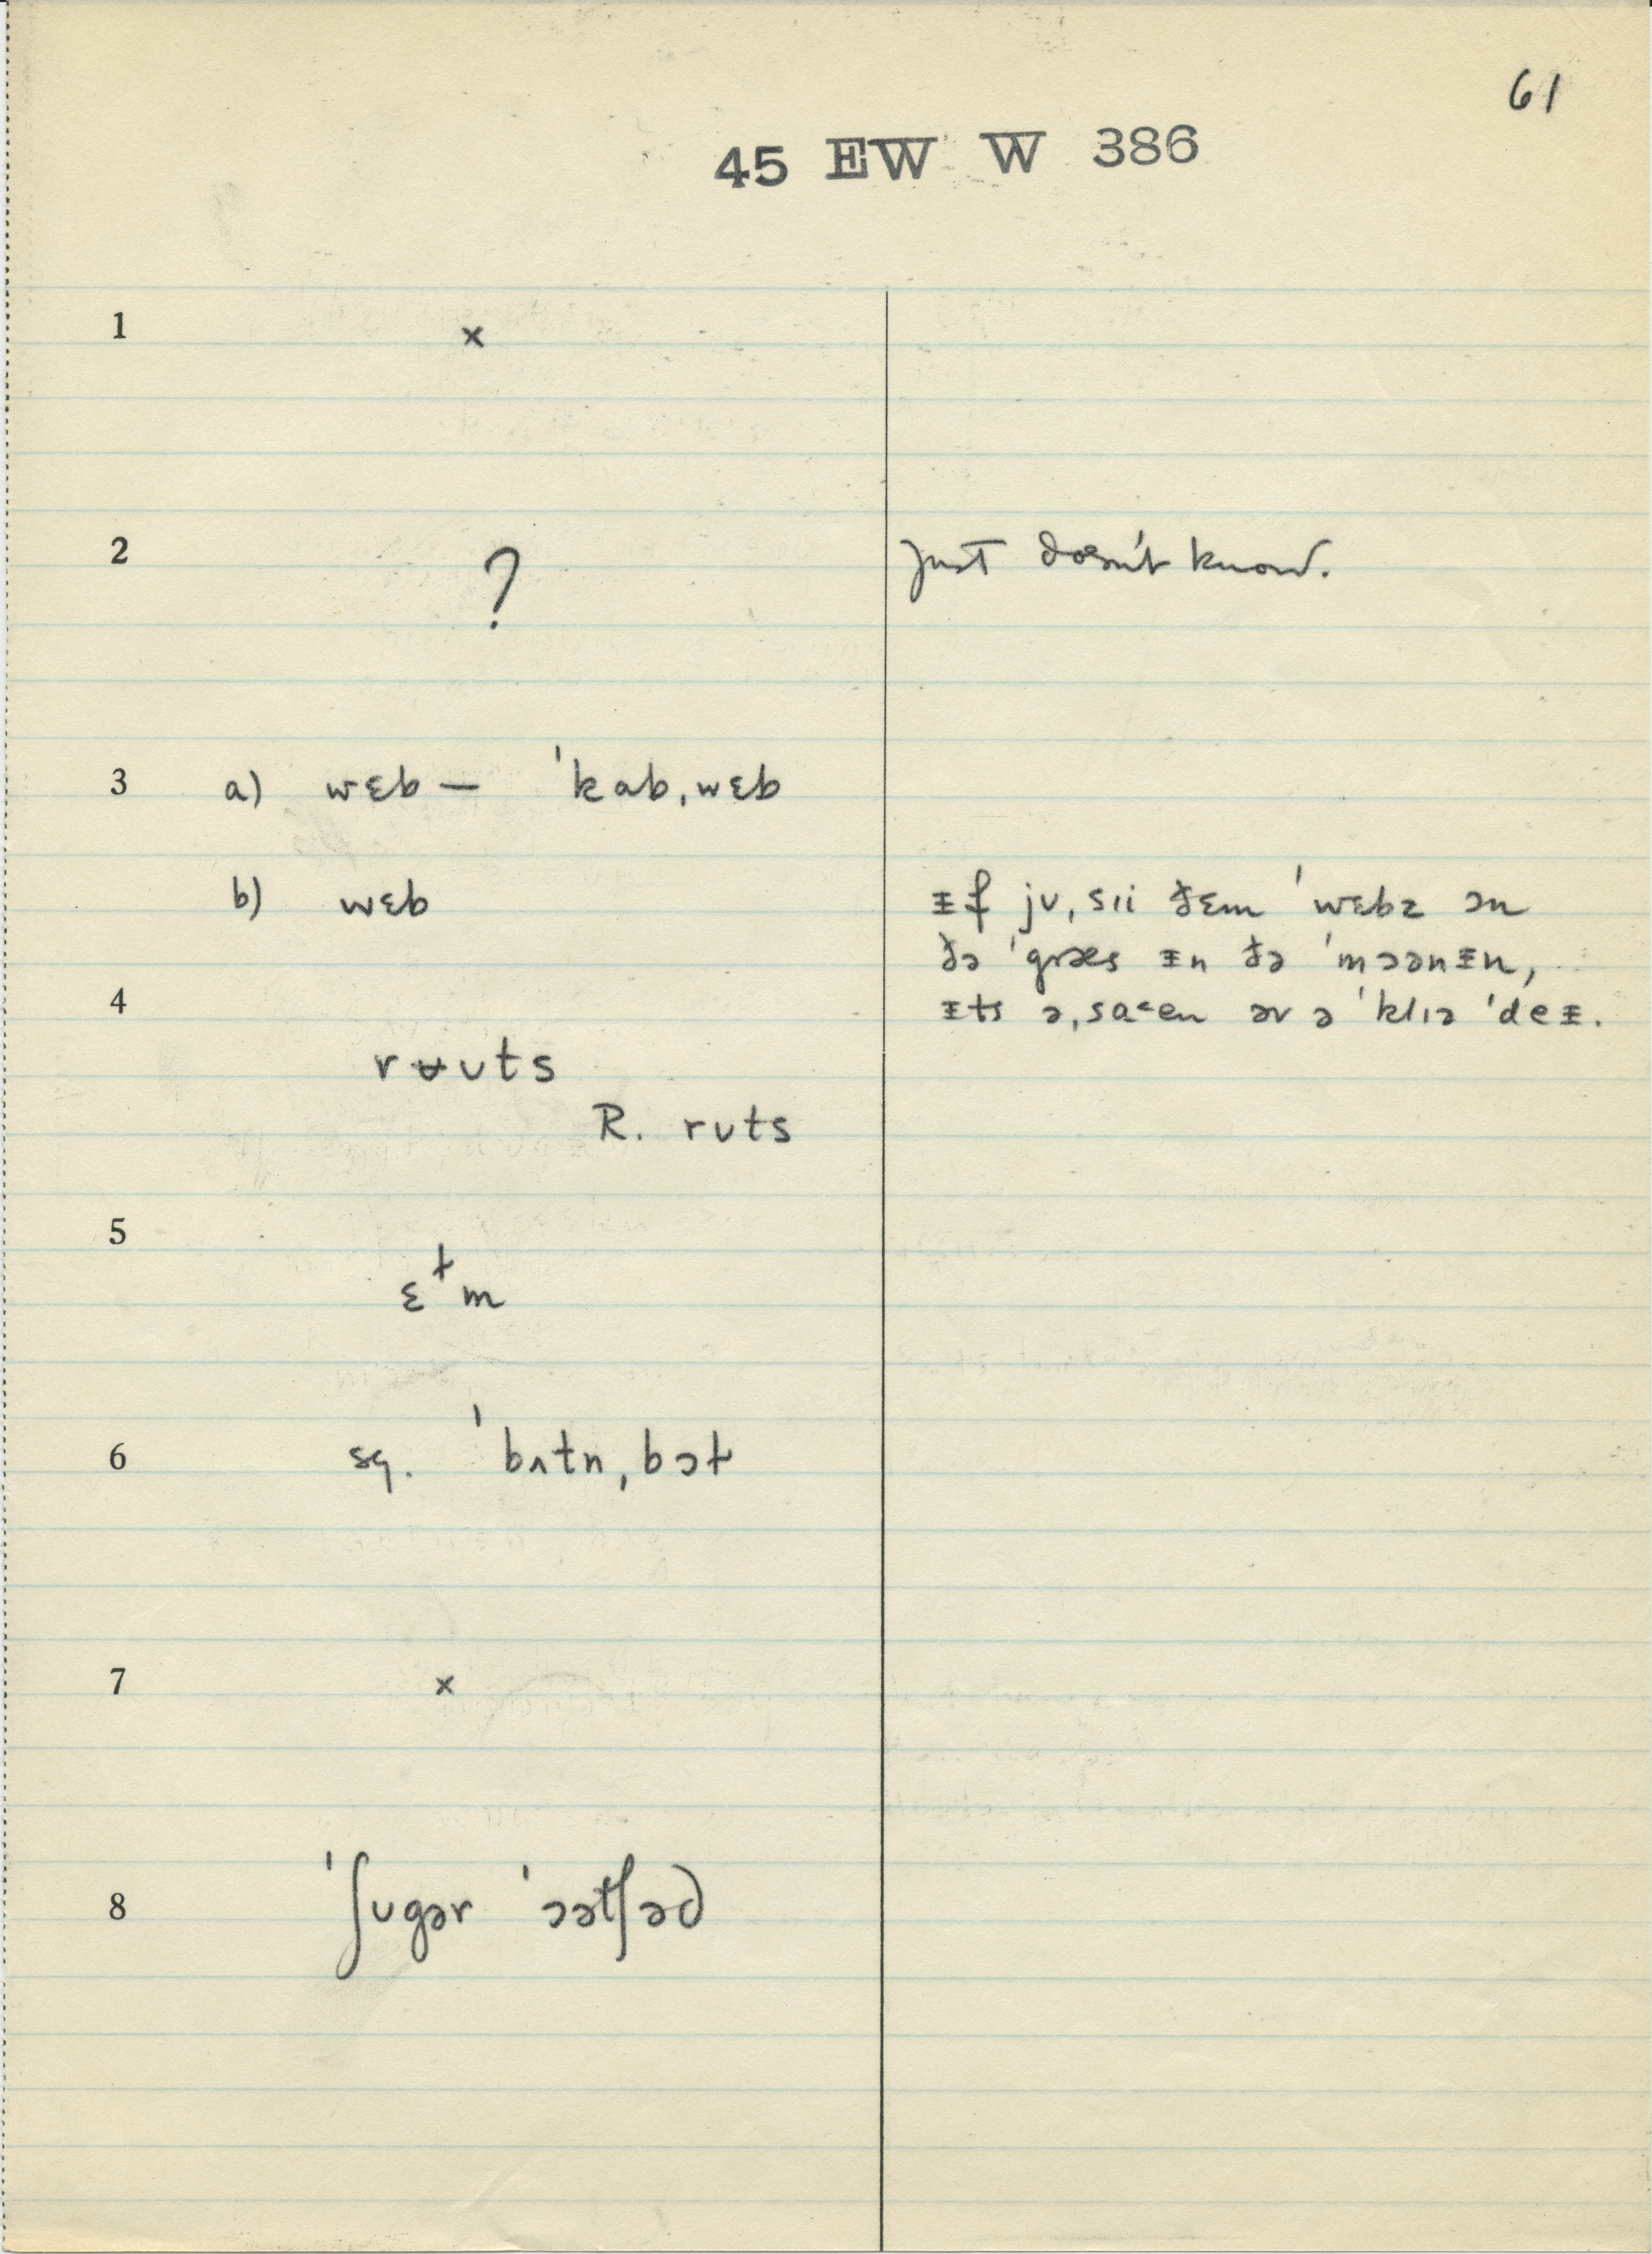 61
45 EW W 386
1 ×
2 ? Just doesn't know.
3 a) wɛb — ˈkabˌwɛb
b) wɛb
ᵻf jʊˌsɪi ðɛm ˈwɛbz ɔn
ðə ˈgræs ᵻn ðə ˈmɔənᵻn,
ᵻts əˌsaˤen əv ə ˈklɪə ˈdeᵻ.
4
rʉʊts
R. rʊts
5
ɛɫm
6 sq. ˈbʌtnˌbɔɫ
7 ×
8 ˈʃʊgər ˈɔətʃəd